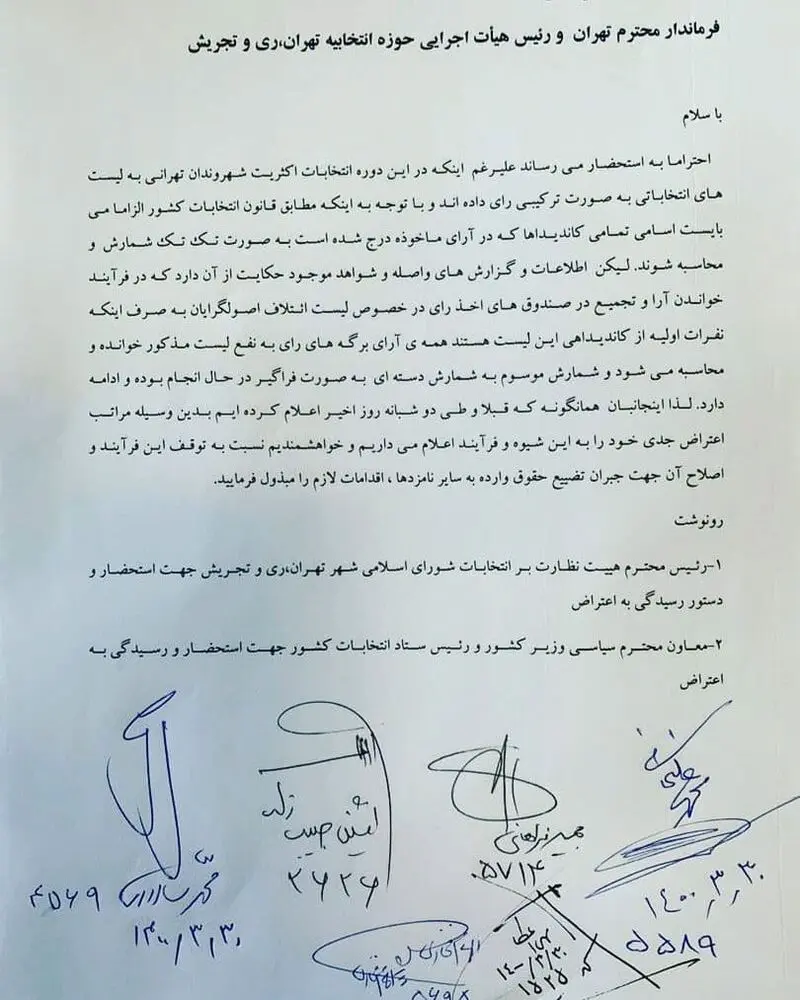 فرماندار محترم تهران و رئیس هیأت اجرایی حوزه انتخابیه تهران،ری و تجریش
با سلام
احتراما به استحضار می رساند علیرغم اینکه در این دوره انتخابات اکثریت شهروندان تهرانی به لیست
های انتخاباتی به صورت ترکیبی رای داده اند و با توجه به اینکه مطابق قانون انتخابات کشور الزاما می
بایست اسامی تمامی کاندیداها که در آرای ماخوذه درج شده است به صورت تک تک شمارش و
محاسبه شوند. لیکن اطلاعات و گزارش های واصله و شواهد موجود حکایت از آن دارد که در فرآیند
خواندن آرا و تجمیع در صندوق های اخذ رای در خصوص لیست ائتلاف اصولگرایان به صرف اینکه
نفرات اولیه از کاندیداهی این لیست هستند همه ی آرای برگه های رای به نفع لیست مذکور خوانده و
محاسبه می شود و شمارش موسوم به شمارش دسته ای به صورت فراگیر در حال انجام بوده و ادامه
دارد. لذا اینجانبان همانگونه که قبلا و طی دو شبانه روز اخیر اعلام کرده ایم بدین وسیله مراتب
اعتراض جدی خود را به این شیوه و فرآیند اعلام می داریم و خواهشمندیم نسبت به توقف این فرآیند و
اصلاح آن جهت جبران تضییع حقوق وارده به سایر نامزدها ، اقدامات لازم را مبذول فرمایید.
رونوشت
۱-رئیس محترم هییت نظارت بر انتخابات شورای اسلامی شهر تهران،ری و تجریش جهت استحضار و
دستور رسیدگی به اعتراض
۲-معاون محترم سیاسی وزیر کشور و رئیس ستاد انتخابات کشور جهت استحضار و رسیدگی به
اعتراض
محمد علی
۱۴۰۰,۳,۳۰
۵۵۸۹
مجید فراهانی
۵۷۱۴
افشین حبیب زاده
۲۶۲۶
محمد سالاری
۴۵۶۹
۱۴۰۰/۳/۳۰
۱۴۰۰/۳/۳۰
کد ۱۵۲۵